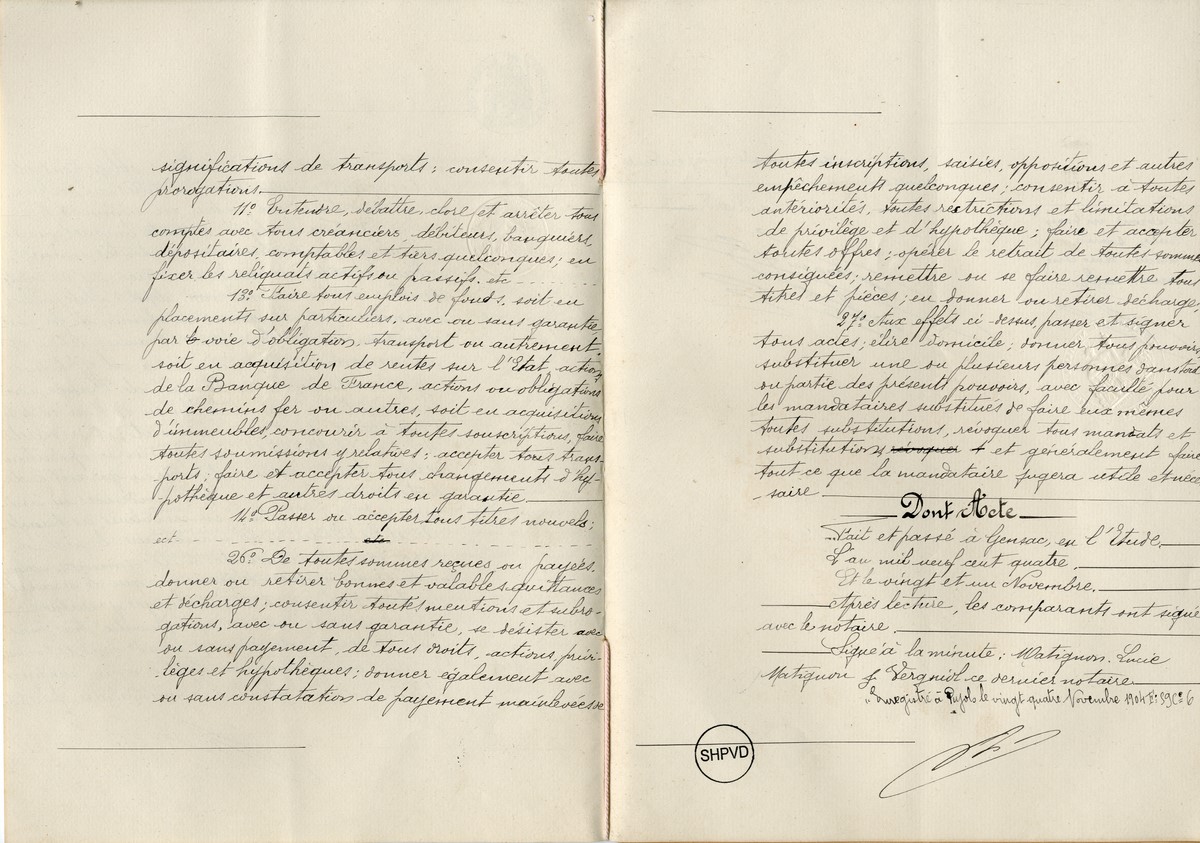 significations de transports ; consentir toutes
prorogations.
11º Entendre, débattre, clore et arrêter tous
comptes avec tous créanciers, débiteurs, banquiers,
dépositaires, comptables et tiers quelconques ; en
fixer les reliquats actifs ou passifs. etc
13º Faire tous emplois de fonds, soit en
placements sur particuliers, avec ou sans garantie
par voie d'obligation, transport ou autrement,
soit en acquisition de rentes sur l'Etat, actions
de la Banque de France, actions ou obligations
de chemins fer ou autres, soit en acquisitions
d'immeubles, concourir à toutes souscriptions, faire
toutes soumissions y relatives ; accepter tous trans-
ports ; faire et accepter tous changements d'hy-
pothèque et autres droits en garantie
14º Passer ou accepter tous titres nouvels ;
ect
26º De toutes sommes reçues ou payées,
donner ou retirer bonnes et valables quittances
et décharges ; consentir toutes mentions et subro-
gations, avec ou sans garantie, se désister avec
ou sans payement, de tous droits, actions, privi-
lèges et hypothèques ; donner également avec
ou sans constatation de payement mainlevées de
toutes inscriptions, saisies, oppositions et autres
empêchements quelconques ; consentir à toutes
antériorités, toutes restrictions et limitations
de privilège et d'hypothèque ; faire et accepter
toutes offres ; opérer le retrait de toutes sommes
consignées ; remettre ou se faire remettre tous
titres et pièces ; en donner ou retirer décharge,
27º Aux effets ci-dessus, passer et signer
tous actes ; élire domicile ; donner tous pouvoirs
substituer une ou plusieurs personnes dans tout
ou partie des présents pouvoirs, avec faculté pour
les mandataires substitués de faire eux mêmes
toutes substitutions, révoquer tous mandats et
substitutions révoquer + et généralement faire
tout ce que la mandataire jugera utile et néces
-saire
Dont Acte
Fait et passé à Gensac, en l'Etude.
L'an mil neuf cent quatre.
Et le vingt et un Novembre.
Après lecture, les comparants ont signé
avec le notaire.
Signé à la minute : Matignon. Lucie
Matignon & Vergniol ce dernier notaire.
Enregistré à Pujols le vingt quatre Novembre 1904 Fº 59 Cº 6
SHPVD